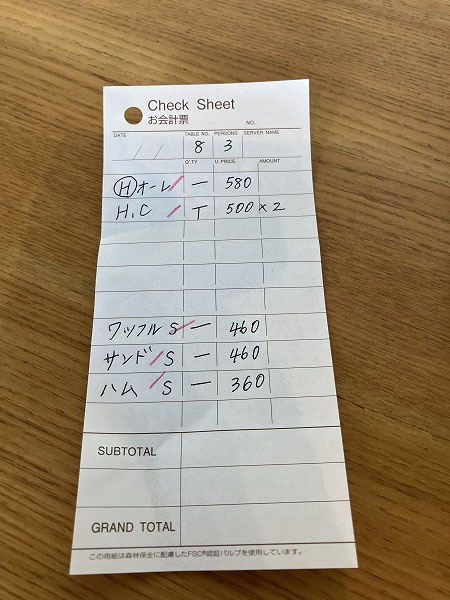 Check Sheet
お会計票
NO.
DATE TABLE NO. PERSONS SERVER NAME
/ / 8 3
Q'TY U.PRICE AMOUNT
Ⓗオーレ 一 580
H.C T 500×2
ワッフル S 一 460
サンド S 一 460
ハム S 一 360
SUBTOTAL
GRAND TOTAL
この用紙は森林保全に配慮したFSC®認証パルプを使用しています。